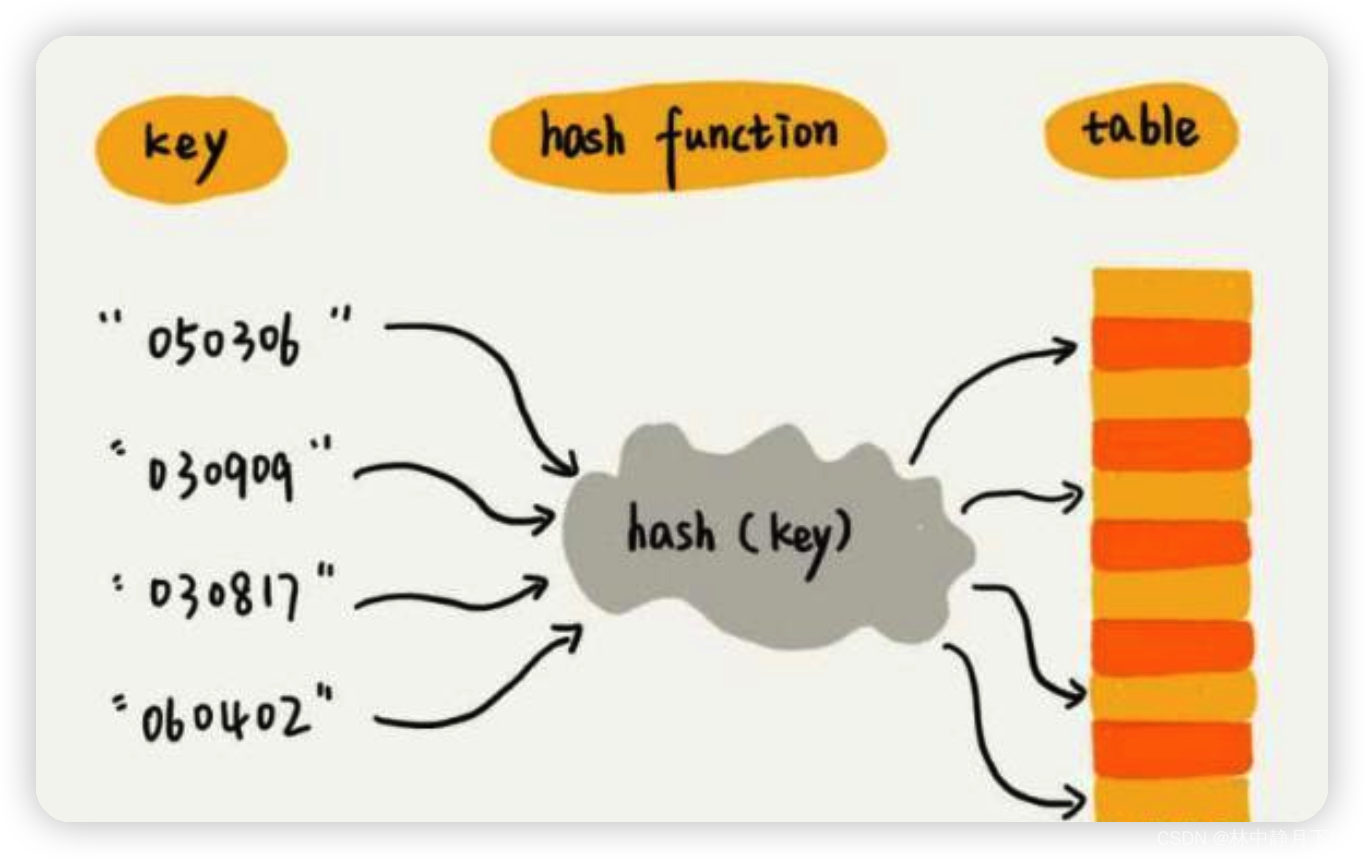 key
hash function
table
"050306"
"030909"
"030817"
"060402"
hash (key)
CSDN @林中静月下